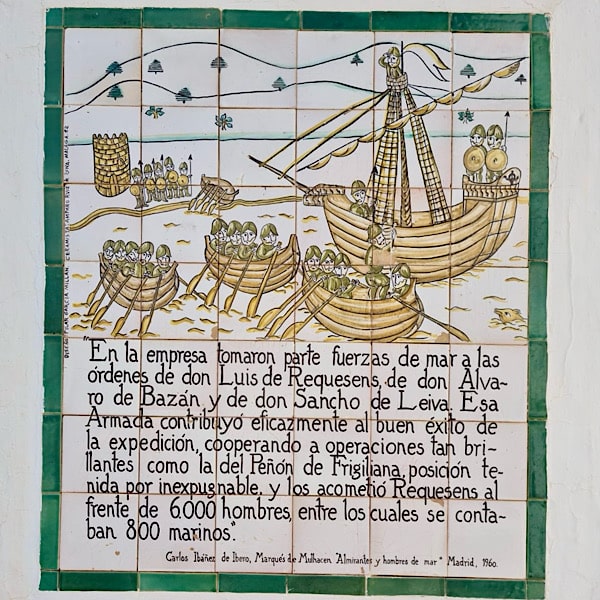 "En la empresa tomaron parte fuerzas de mar a las
órdenes de don Luis de Requesens, de don Alva-
ro de Bazán y de don Sancho de Leiva. Esa
Armada contribuyó eficazmente al buen éxito de
la expedición, cooperando a operaciones tan bri-
llantes como la del Peñón de Frigiliana, posición te-
nida por inexpugnable, y los acometió Requesens al
frente de 6.000 hombres, entre los cuales se conta-
ban 800 marinos".
Carlos Ibáñez de Ibero, Marqués de Mulhacen "Almirantes y hombres de mar" Madrid, 1960.
PILAR GARCIA MILLAN